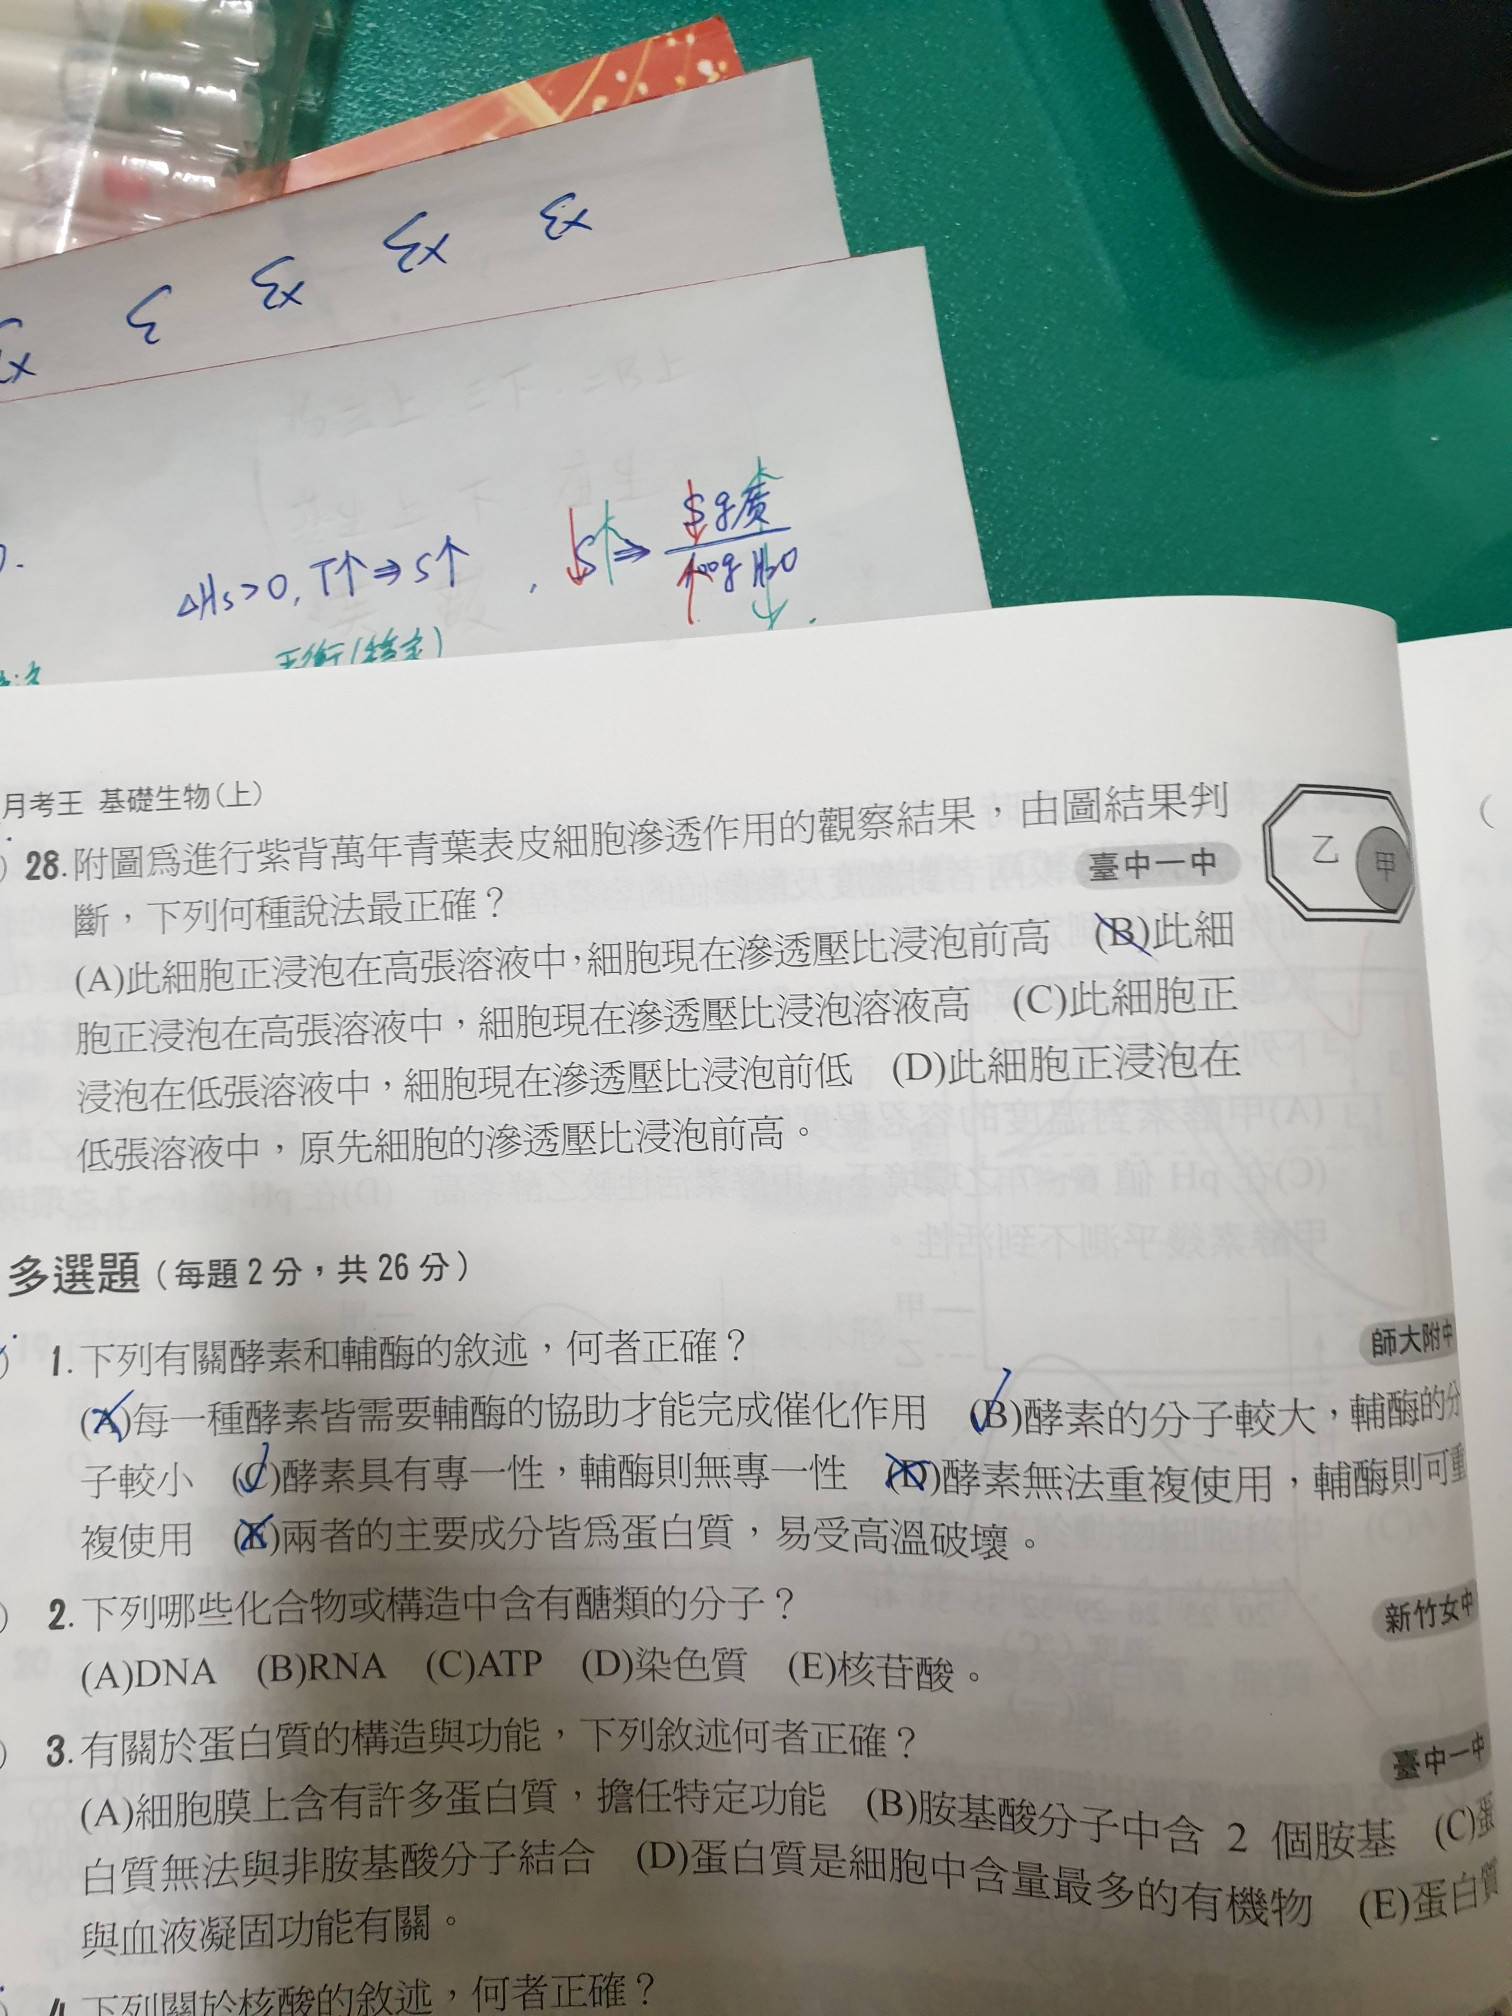 x3
x3
3
x3
ΔHs>0, T↑⇒S↑ , S⇒ S g質 / 100g H2O
平衡(穩定)
月考王 基礎生物(上)
28.附圖為進行紫背萬年青葉表皮細胞滲透作用的觀察結果,由圖結果判
斷,下列何種說法最正確? 臺中一中
乙 甲
(A)此細胞正浸泡在高張溶液中,細胞現在滲透壓比浸泡前高 (B)此細
胞正浸泡在高張溶液中,細胞現在滲透壓比浸泡溶液高 (C)此細胞正
浸泡在低張溶液中,細胞現在滲透壓比浸泡前低 (D)此細胞正浸泡在
低張溶液中,原先細胞的滲透壓比浸泡前高。
多選題(每題2分,共26分)
1.下列有關酵素和輔酶的敘述,何者正確? 師大附中
(A)每一種酵素皆需要輔酶的協助才能完成催化作用 (B)酵素的分子較大,輔酶的分
子較小 (C)酵素具有專一性,輔酶則無專一性 (D)酵素無法重複使用,輔酶則可重
複使用 (E)兩者的主要成分皆為蛋白質,易受高溫破壞。
2.下列哪些化合物或構造中含有醣類的分子? 新竹女中
(A)DNA (B)RNA (C)ATP (D)染色質 (E)核苷酸。
3.有關於蛋白質的構造與功能,下列敘述何者正確? 臺中一中
(A)細胞膜上含有許多蛋白質,擔任特定功能 (B)胺基酸分子中含 2 個胺基 (C)蛋
白質無法與非胺基酸分子結合 (D)蛋白質是細胞中含量最多的有機物 (E)蛋白質
與血液凝固功能有關。
4.下列關於核酸的敘述,何者正確?